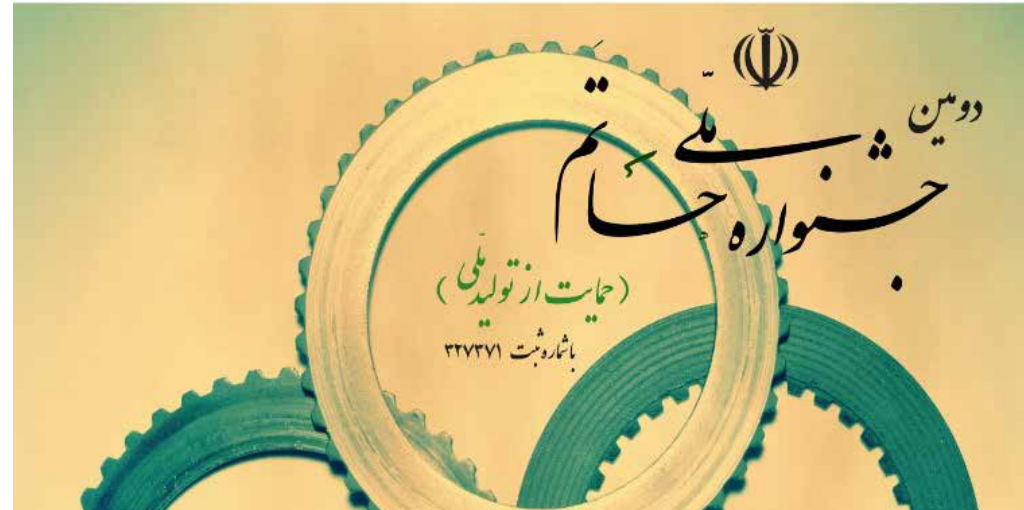 دومین
جشنواره ملّی حاتم
(حمایت از تولید ملّی)
باشماره ثبت ۳۲۷۳۷۱